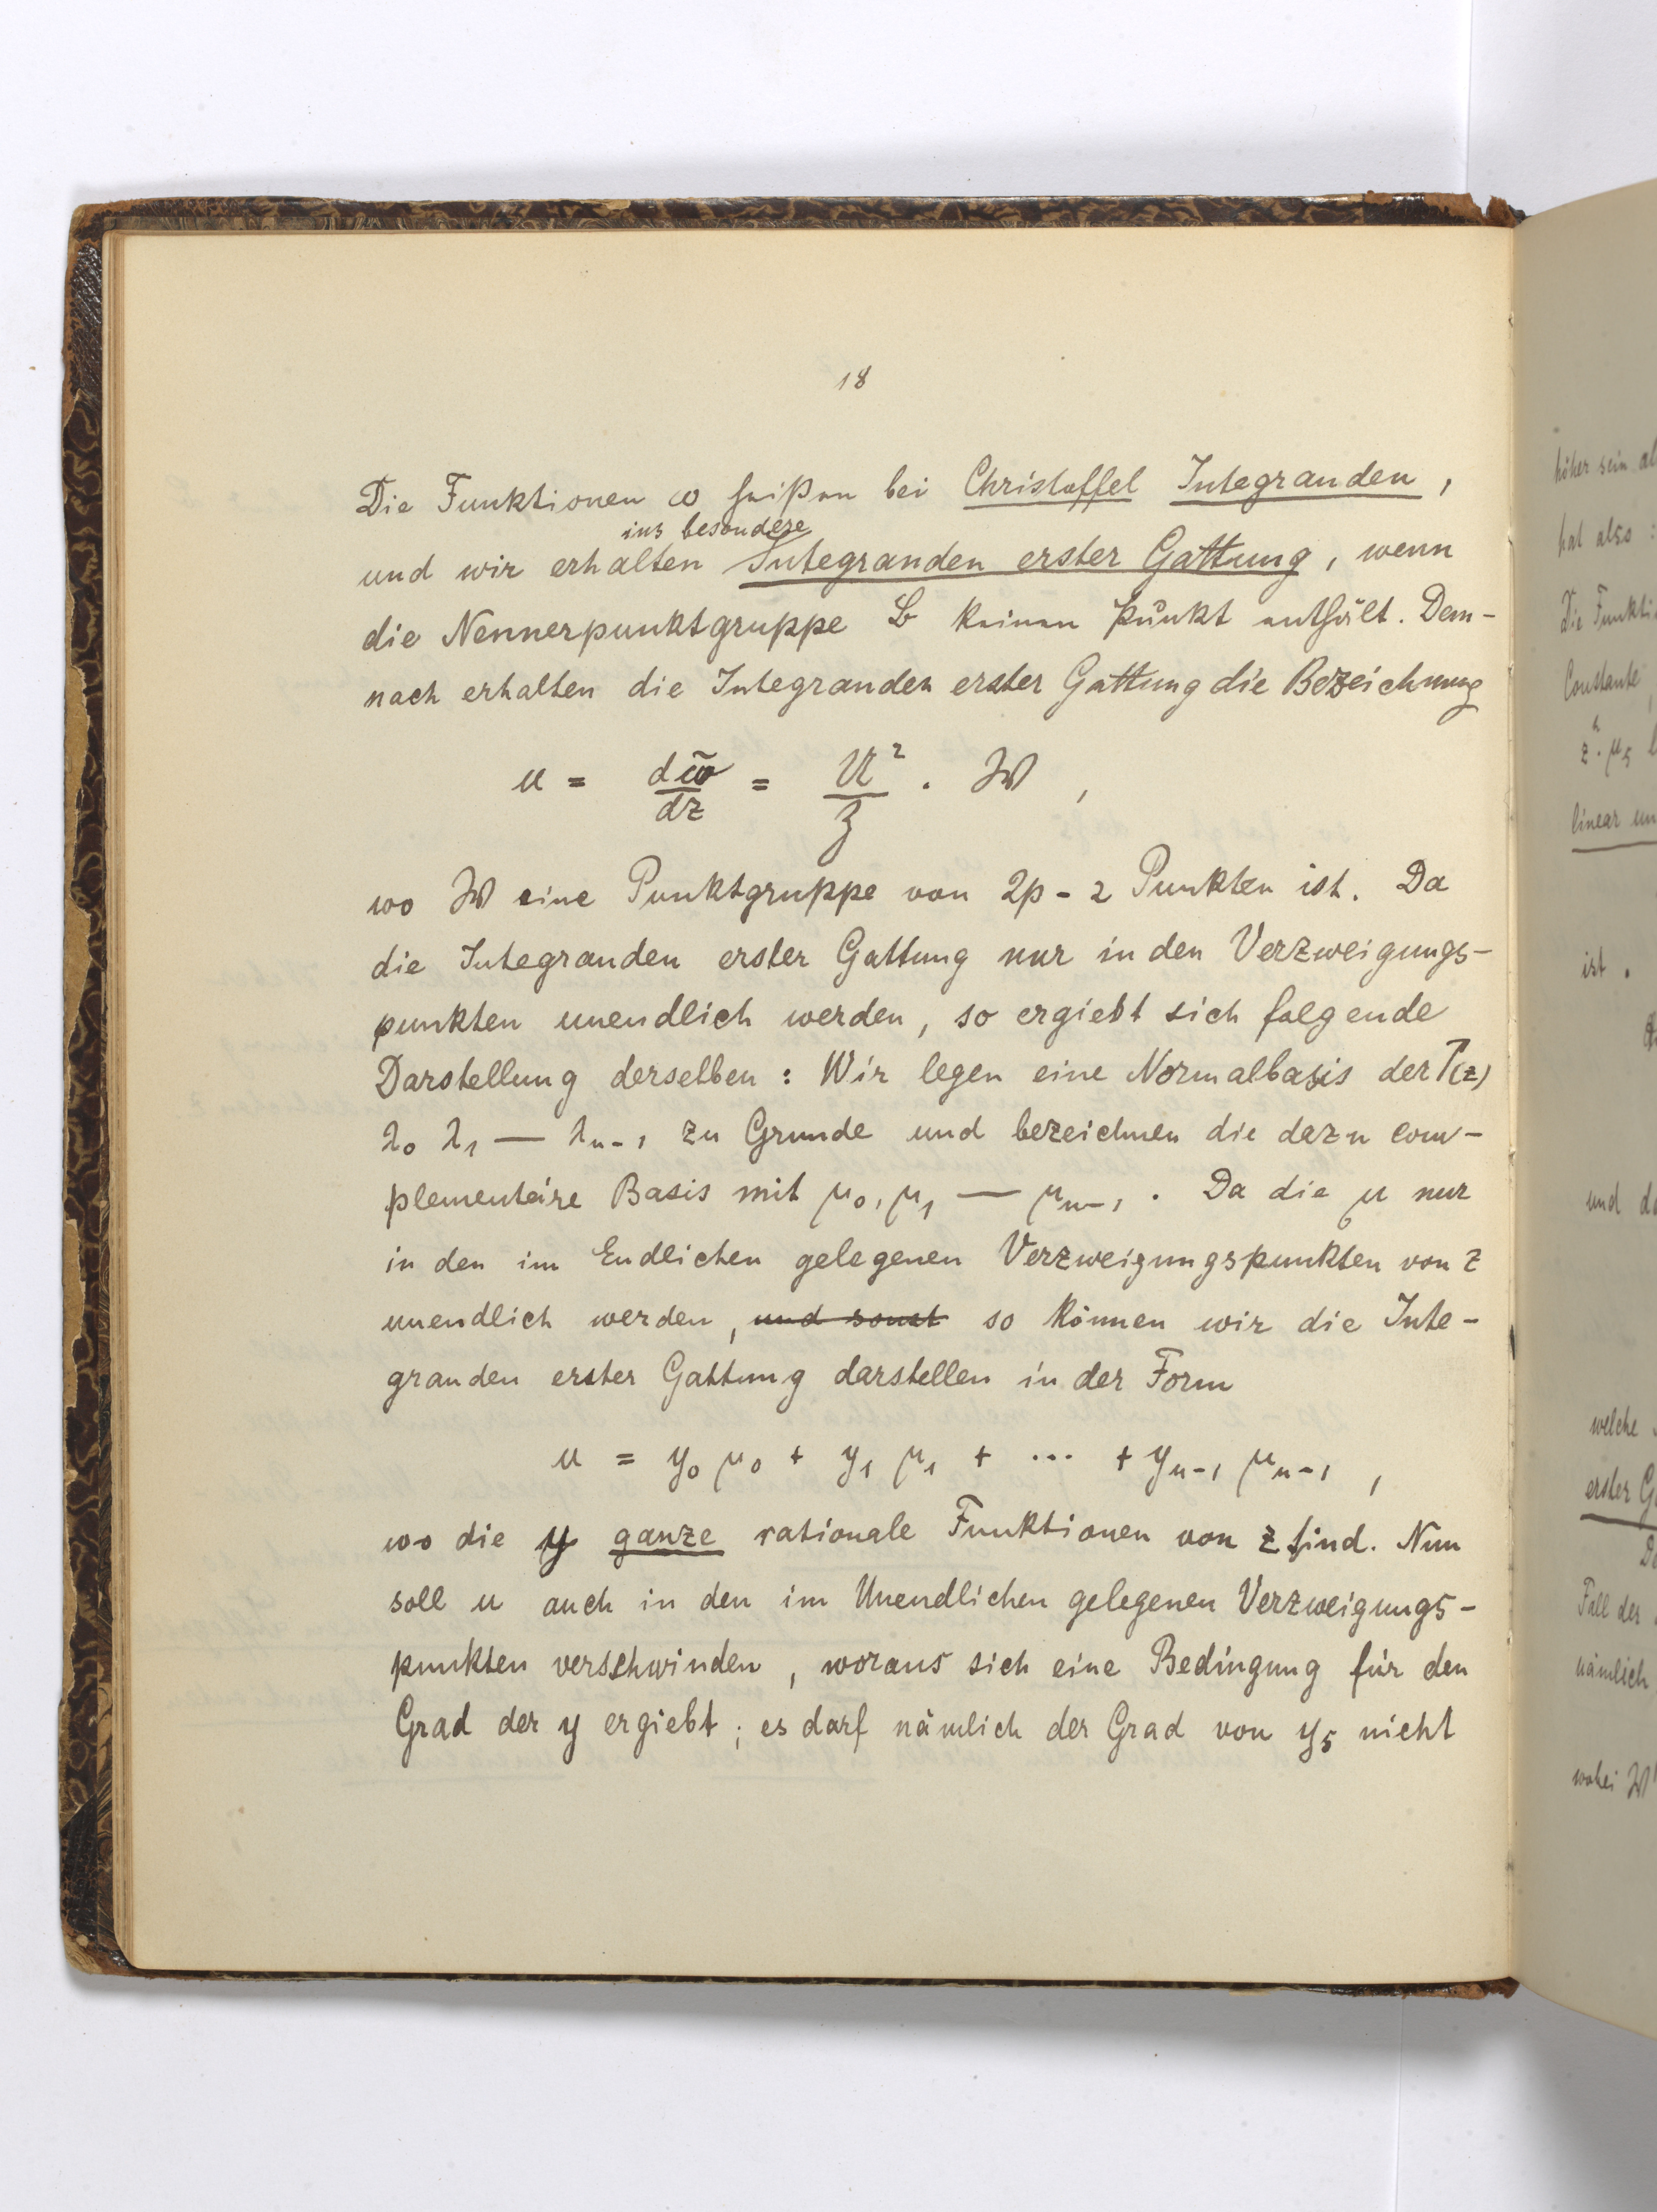 18
Die Funktionen ω heißen bei Christoffel Integranden,
ins besondere
und wir erhalten Integranden erster Gattung, wenn
die Nennerpunktgruppe L keinen Punkt enthält. Dem-
nach erhalten die Integranden erster Gattung die Bezeichnung
u = dω̃/dz = U²/Z · W,
wo W eine Punktgruppe von 2p-2 Punkten ist. Da
die Integranden erster Gattung nur in den Verzweigungs-
punkten unendlich werden, so ergiebt sich folgende
Darstellung derselben: Wir legen eine Normalbasis der T(z)
λ₀ λ₁ — λₙ₋₁ zu Grunde und bezeichnen die dazu com-
plementäre Basis mit μ₀, μ₁ — μₙ₋₁. Da die μ nur
in den im Endlichen gelegenen Verzweigungspunkten von z
unendlich werden, und sonst so können wir die Inte-
granden erster Gattung darstellen in der Form
u = y₀ μ₀ + y₁ μ₁ + ... + yₙ₋₁ μₙ₋₁,
wo die y ganze rationale Funktionen von z sind. Nun
soll u auch in den im Unendlichen gelegenen Verzweigungs-
punkten verschwinden, woraus sich eine Bedingung für den
Grad der y ergiebt; es darf nämlich der Grad von yₛ nicht
höher sein al
hat also :
Die Funkti
Constante
linear un
ist.
und d
welche
erster G
Fall der
nämlich
wobei W